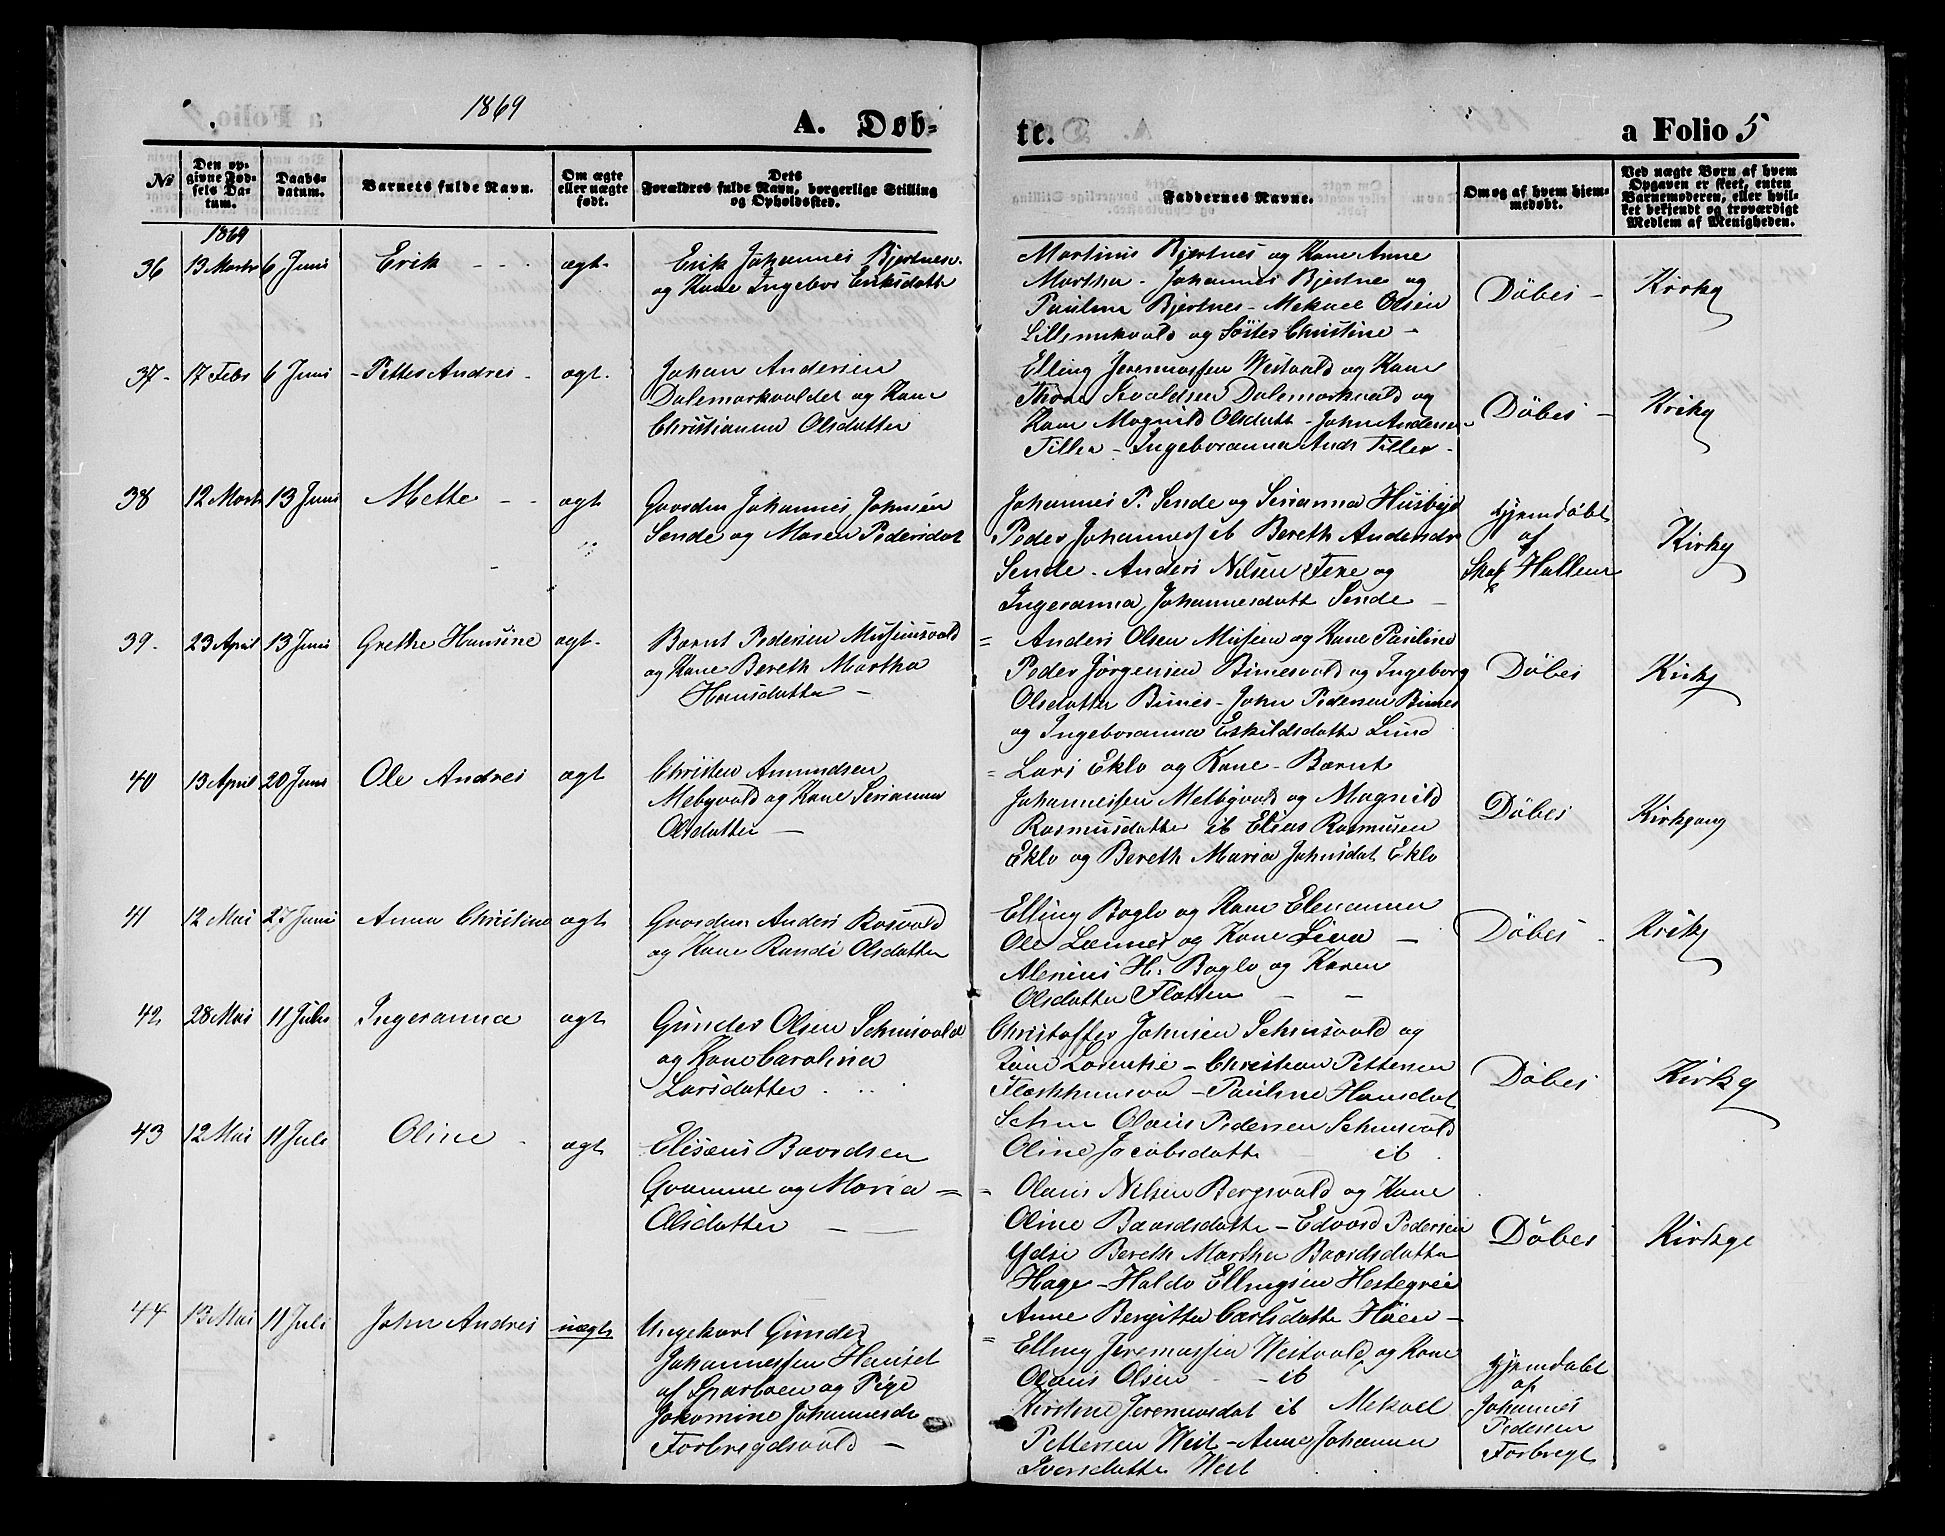 1869 A. Døb-
te. a Folio 5
No
Den op-
givne Fød-
sels Da-
tum.
Daabs-
datum.
Barnets fulde Navn.
Om ægte
eller uægte
født.
Dets
Forældres fulde Navn, borgerlige Stilling
og Opholdssted.
Faddernes Navne.
Om og af hvem hjem-
medøbt.
Ved uægte Børn af hvem
Opgaven er skeet, enten
Barnemoderen, eller hvil-
ket bekjendt og troværdigt
Medlem af Menigheden.
1869
36 13 Marts 6 Juni Erik - - - ægt-
Erik Johannes Bjertnes
og Kone Ingebor Eriksdatte
Martinus Bjertnes og Kone Anne
Martha - Johannes Bjertnes og
Pauline Bjertnes - Mekael Olsen
og Søster Christine -
Døbes -
Kirkg
37- 17 Febr 6 Juni - Petter Andres - ægt.
Johan Andersen
Dalemarkvalden og Kone
Christianna Olsdatter
Elling Jeremiassen Westvald og Kone
Dalemarkvald og
Kone Magnild Olsdatt - John Anders
Tiller - Ingeboranna Andr Tiller -
Døbes -
Kirkg
38 12 Marts 13 Juni Mette - - ægt
Gaarden Johannes Johnsen
Sende og Maren Pedersdat
Johannes P. Sende og Serianna Husbye
Peder Johannes ib Bereth Andersdr
Sende - Anders Nilsen Fere og
Ingeranna Johannesdatt Sende -
Hjemdøbt
af
Skol Hallem
Kirkg
39. 23 April 13 Juni Grethe Hansine ægt-
Barnt Pedersen Musumsvald
og Kone Bereth Martha
Hansdatte -
= Anders Olsen Musem og Kone Pauline
Peder Jørgensen Binnesvald og Ingeborg
Olsdatter Binnes - John Pedersen Binnes
og Ingeboranna Eskildsdatte Lund
Døbes
Kirkg
40 13 April 20 Juni Ole Andres ægt
Christen Amundsen
Mebyvald og Kone Serianna
Olsdatter -
= Lars Eklo og Kone - Barnt
Johannessen Melbyvald og Magnild
Rasmusdatte ib Elias Rasmusen
Eklo og Bereth Maria Johnsdat Eklo
Døbes
Kirkgang
41 12 Mai 27 Juni Anna Christine ægt
Gaarden Anders Rosvold
og Kone Randi Olsdatter
Elling Baglo og Kone Elenanna
Ole Lænnes og Kone Lina -
Alenius H. Baglo og Karen
Olsdatter Flotten - -
Døbes -
Kirkg
42 28 Mai 11 Juli Ingeranna ægt
Gunder Olsen Schnisvald
og Kone Carolina
Larsdatter
Christoffer Johnsen Schnisvald og
Kone Lorentse - Christian Pettersen
- Pauline Hansdat
Schn Olaus Pedersen Schnisvald
Oline Jacobsdatte ib
Døbes
Kirkg
43 12 Mai 11 Juli Oline - ægt
Elisæus Baardsen
Gramme og Maria =
Olsdatter - -
= Olaus Nilsen Bergsvald og Kone
Oline Baardsdatte - Edvard Pedersen
Ydse Bereth Martha Baardsdatter
Hage - Haldo Ellingsen Hestegrei
Anne Bergitte Carlsdatte Høen -
Døbes
Kirkge
44 13 Mai 11 Juli John Andres uægt
Ungekarl Gunder
Johannessen Hanset
af Sparboen og Pige
Jokomine Johannesdr
Forbregdsvald -
= Elling Jeremiassen Westvald og Kone
Olaus Olsen - ib
Kirstine Jeremiasdat ib Mekael
Pettersen West - Anne Johanna
Iversdatte West
Hjemdøbt
af
Johannes
Pedersen
Forbregt